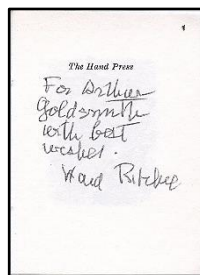 The Hand Press
For Arthur
Goldsmith
with best
wishes.
Ward Ritchie